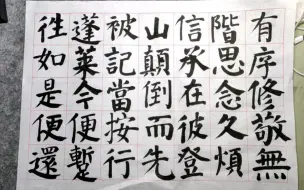 有序修敬無
階思念久煩
信承在彼登
山顛倒而先
被記當按行
蓬萊今便蹔
徃如是便還